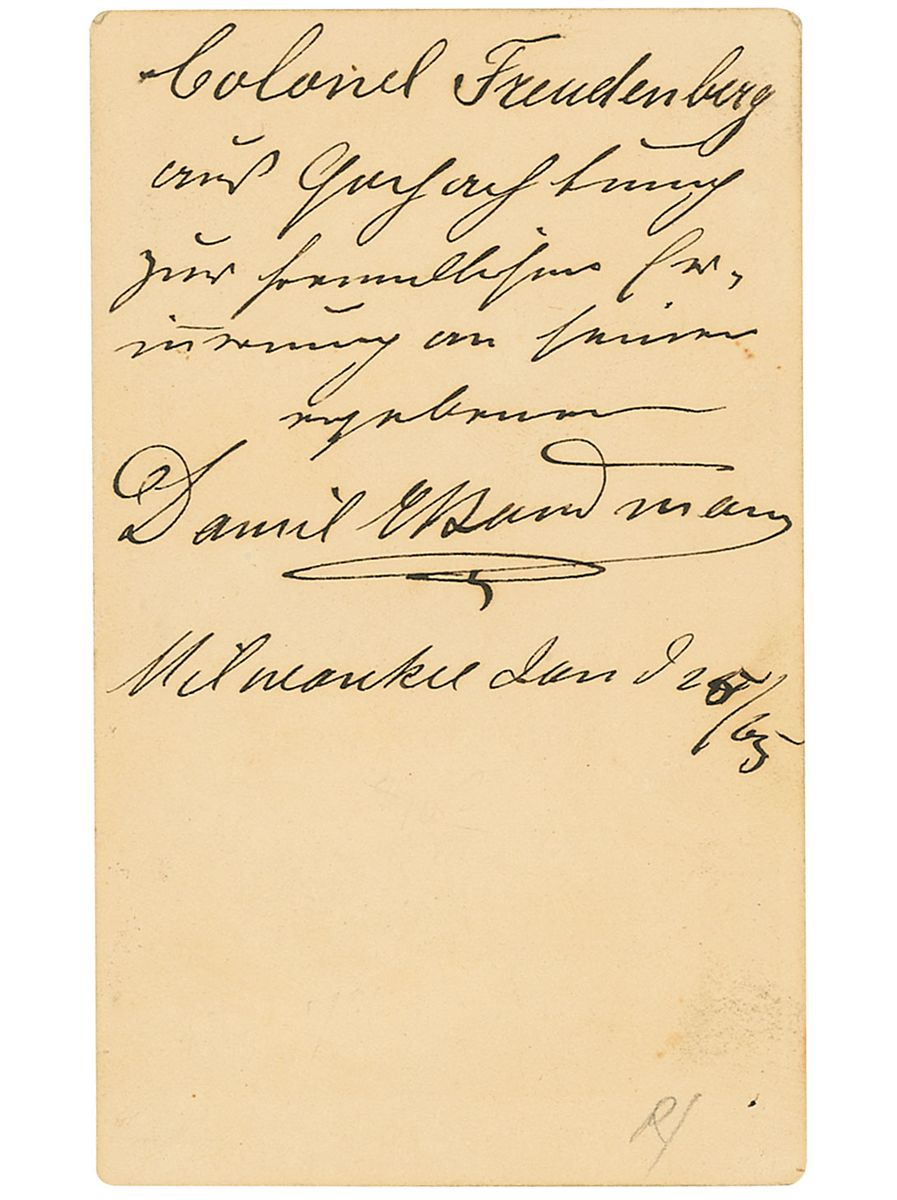 Colonel Freudenberg
aus Hochachtung
zur freundlichen Er-
innerung an seinen
ergebenen
Daniel E Bandmann
Milwaukee Jan d 25/65
R/